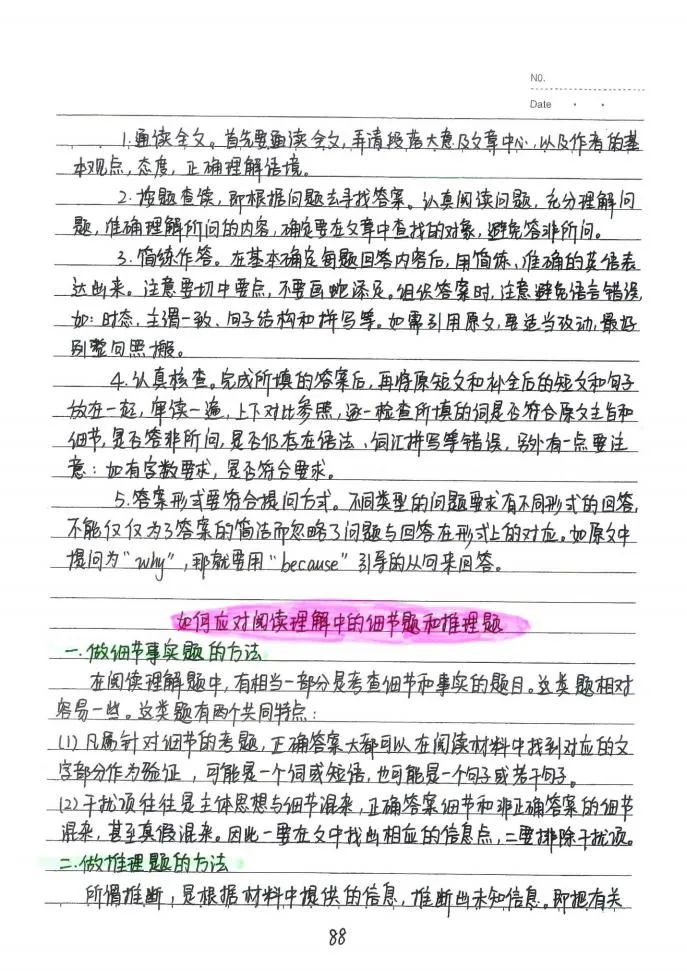 No.
Date
1.通读全文。首先要通读全文,弄清段落大意及文章中心,以及作者的基
本观点,态度,正确理解语境。
2.按题查读,即根据问题去寻找答案。认真阅读问题,充分理解问
题,准确理解所问的内容,确定要在文章中查找的对象,避免答非所问。
3.简练作答。在基本确定每题回答内容后,用简练、准确的英语表
达出来。注意要切中要点,不要画蛇添足。组织答案时,注意避免语言错误,
如:时态,主谓一致、句子结构和拼写等。如需引用原文,要适当改动,最好
别整句照搬。
4.认真核查。完成所填的答案后,再将原短文和补全后的短文和句子
放在一起,审读一遍,上下对比参照,逐一检查所填的词是否符合原文主旨和
细节,是否答非所问,是否仍存在语法、词汇拼写等错误,另外有一点要注
意:如有字数要求,是否符合要求。
5.答案形式要符合提问方式。不同类型的问题要求有不同形式的回答,
不能仅仅为了答案的简洁而忽略了问题与回答在形式上的对应。如原文中
提问为“why”,那就要用“because”引导的从句来回答。
如何应对阅读理解中的细节题和推理题
一.做细节事实题的方法
在阅读理解题中,有相当一部分是考查细节和事实的题目。这类题相对
容易一些。这类题有两个共同特点:
(1)凡属针对细节的考题,正确答案大都可以在阅读材料中找到对应的文
字部分作为验证,可能是一个词或短语,也可能是一个句子或若干句子。
(2)干扰项往往是主体思想与细节混来,正确答案细节和非正确答案的细节
混来,甚至真假混来。因此一要在文中找出相应的信息点,二要排除干扰项。
二.做推理题的方法
所谓推断,是根据材料中提供的信息,推断出未知信息。即把有关
88